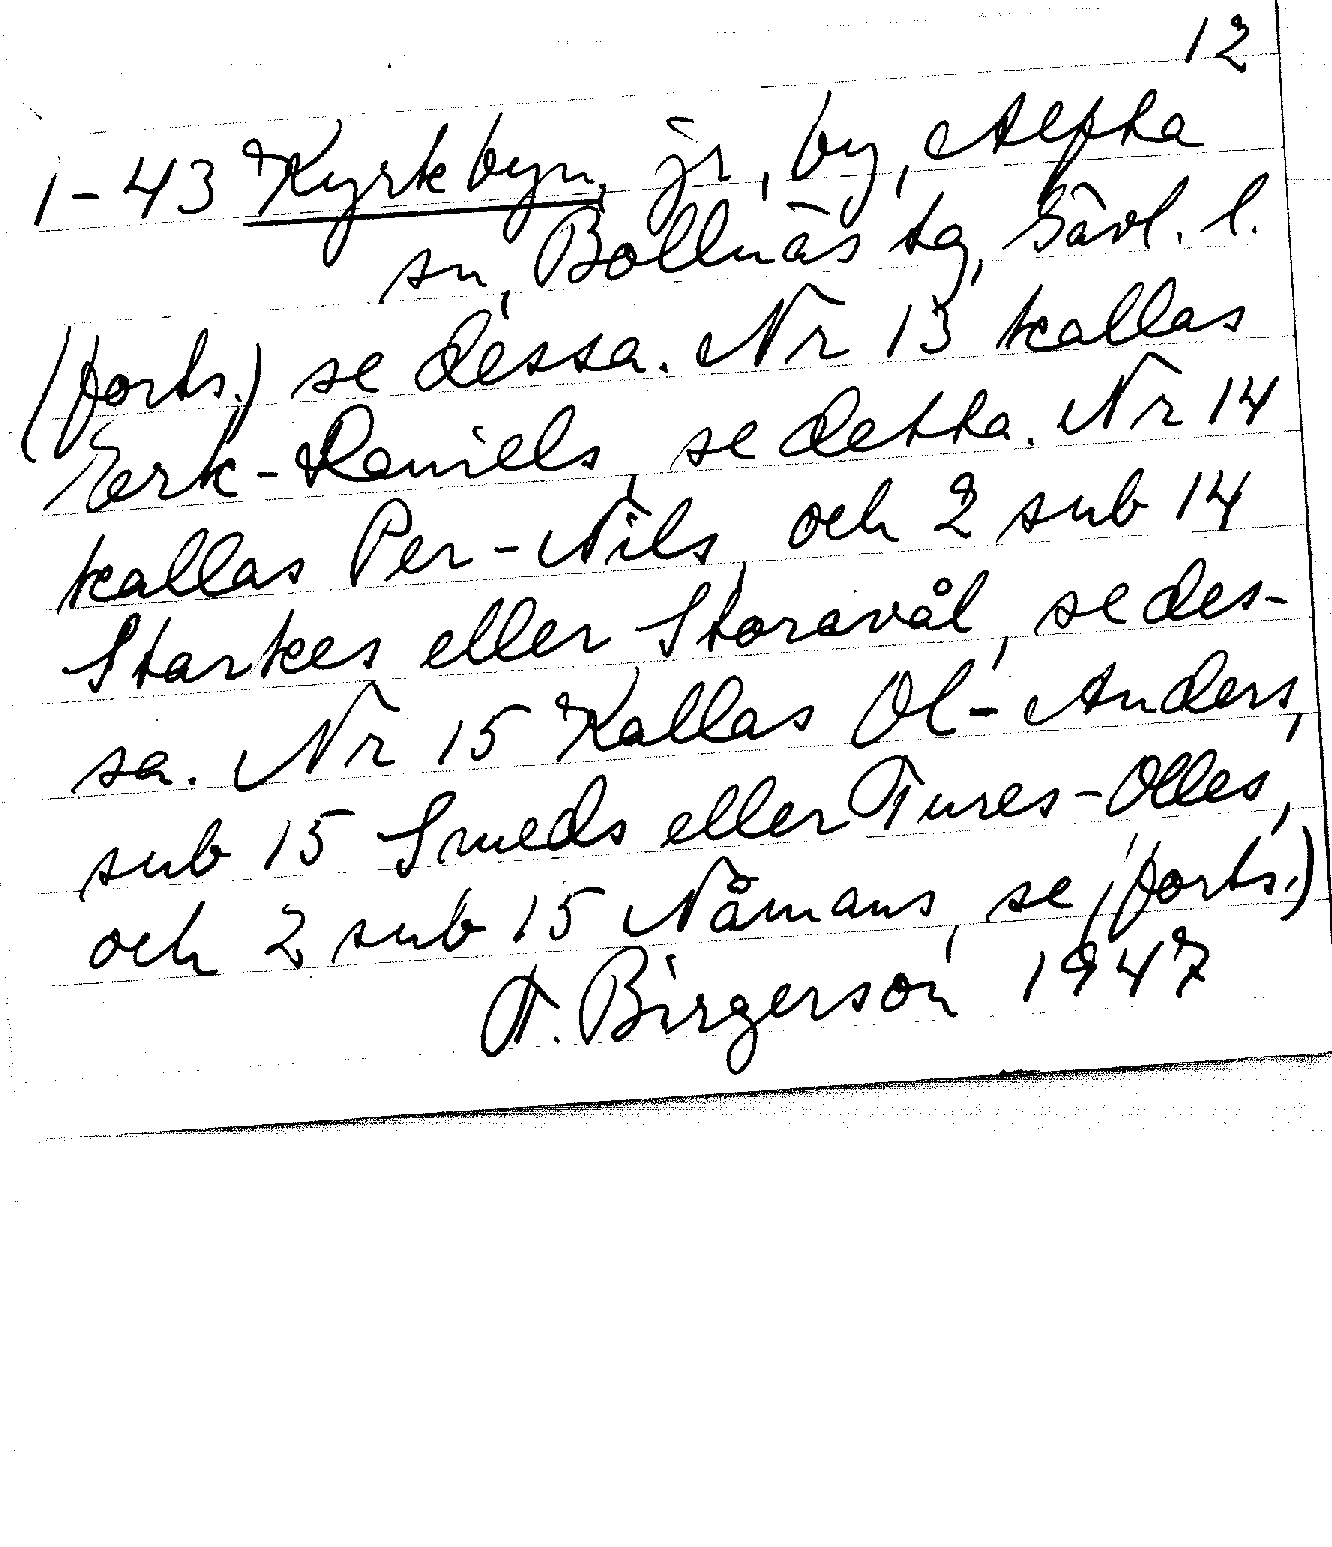 12
1-43 Kyrkbyn, jr, by, Alfta
sn, Bollnäs tg, Gävl. l.
(forts.) se dessa. Nr 13 kallas
Eerk-Daniels, se detta. Nr 14
kallas Per-Nils, och 2 sub 14
Starkes eller Storavål, se des-
sa. Nr 15 Kallas Ol-Anders,
sub 15 Smeds eller Tures-Olles,
och 2 sub 15 Nåmans, se (forts.)
T. Birgerson 1947